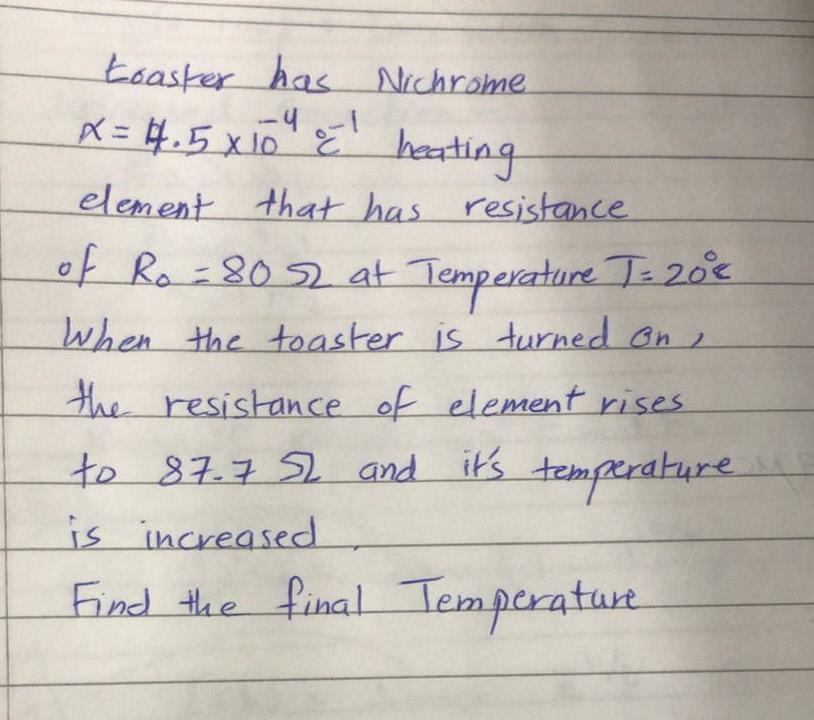 toaster has Nichrome
α = 4.5 x 10⁻⁴ °C⁻¹ heating
element that has resistance
of R₀ = 80 Ω at Temperature T = 20°C
When the toaster is turned on,
the resistance of element rises
to 87.7 Ω and it's temperature
is increased.
Find the final Temperature